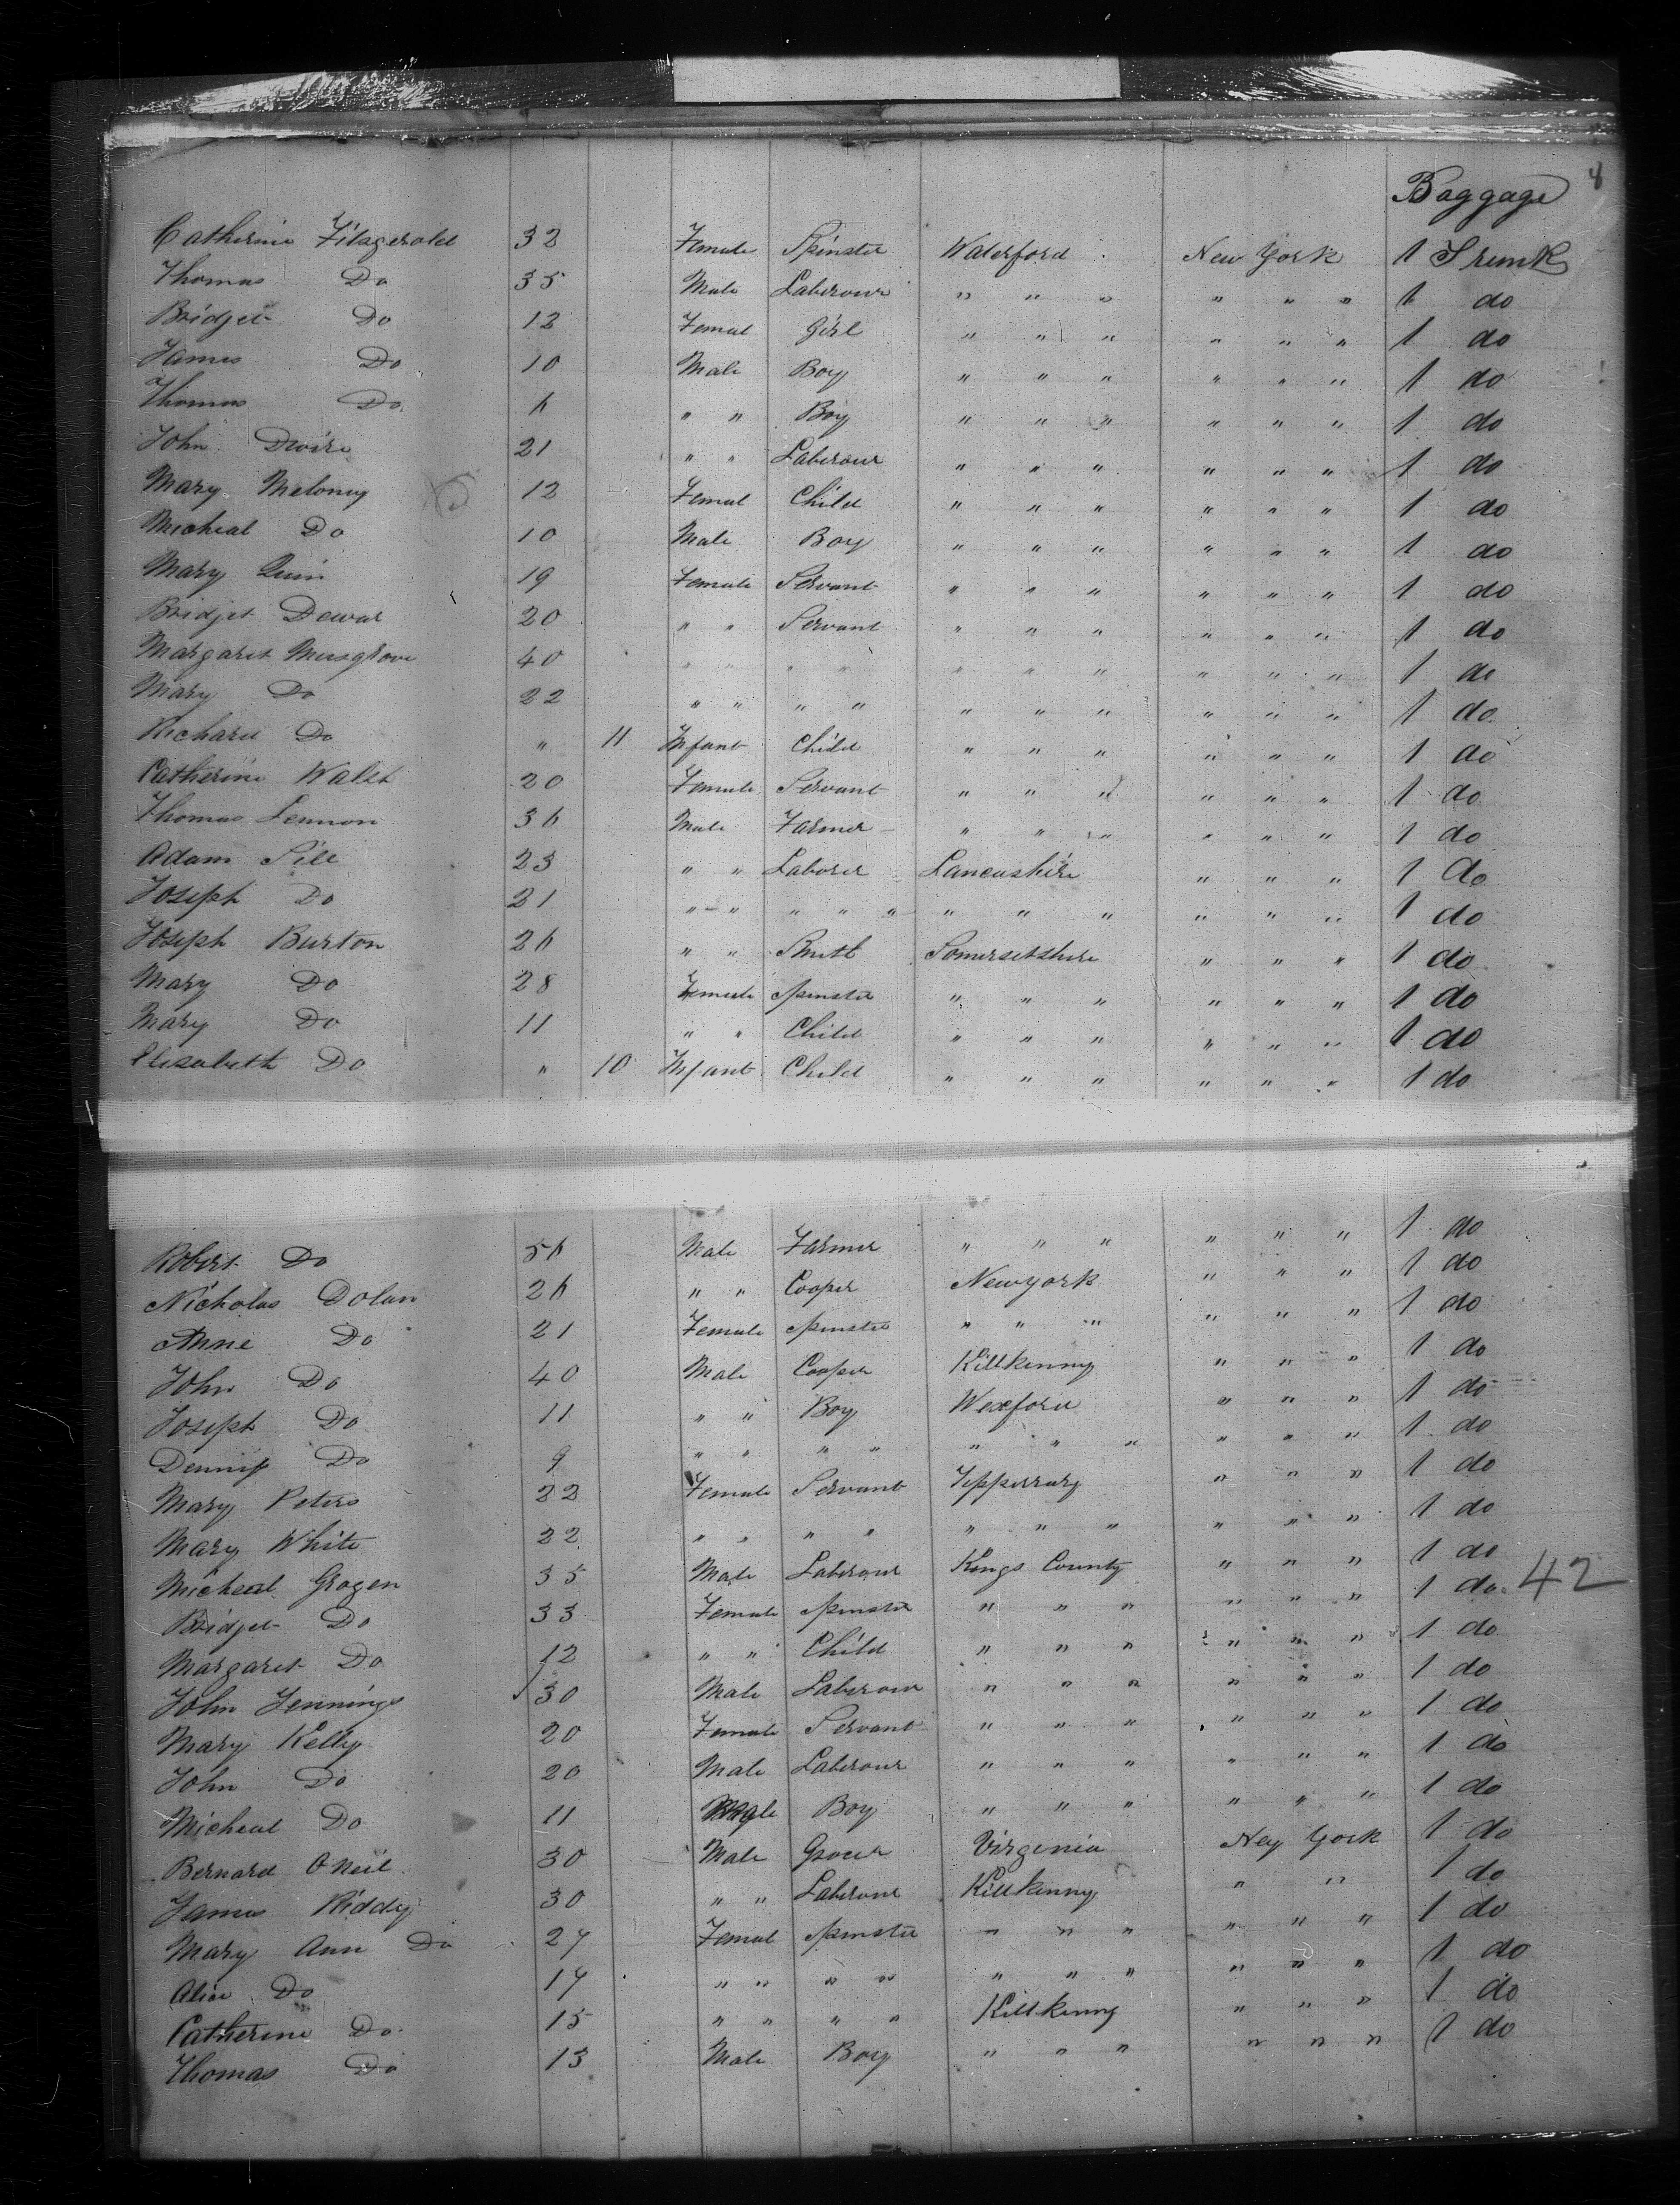 Baggage 8
Catherine Fitzgerald 32 Female Spinster Waterford New York 1 Trunk
Thomas Do 35 Male Laberour " " " " " " 1 do
Bridjet Do 12 Femal Girl " " " " " " 1 do
James Do 10 Male Boy " " " " " " 1 do
Thomas Do 6 " " Boy " " " " " " 1 do
John Dwire 21 " " Laberour " " " " " " 1 do
Mary Meloney 12 Femal Child " " " " " " 1 do
Micheal Do 10 Male Boy " " " " " " 1 do
Mary Quin 19 Female Servant " " " " " " 1 do
Bridjet Dewar 20 " " Servant " " " " " " 1 do
Margaret Musgrove 40 " " " " " " " " " " 1 do
Mary Do 22 " " " " " " " " " " 1 do
Richard Do " 11 Infant Child " " " " " " 1 do
Catherine Walsh 20 Female Servant " " " " " " 1 do
Thomas Lennon 36 Male Farmer " " " " " " 1 do
Adam Sill 23 " " Laborer Lancashire " " " 1 do
Joseph Do 21 " " " " " " " " " " " 1 do
Joseph Burton 26 " " Smith Somersetshire " " " 1 do
Mary Do 28 Female Spinster " " " " " " 1 do
Mary Do 11 " " Child " " " " " " 1 do
Elisabeth Do " 10 Infant Child " " " " " " 1 do
Robert Do 56 Male Farmer " " " " " " 1 do
Nicholas Dolan 26 " " Cooper Newyork " " " 1 do
Anne Do 21 Female Spinster " " " " " " 1 do
John Do 40 Male Cooper Killkenny " " " 1 do
Joseph Do 11 " " Boy Wexford " " " 1 do
Dennis Do 9 " " " " " " " " " " 1 do
Mary Peters 22 Female Servant Tipperrary " " " 1 do
Mary White 22 " " " " " " " " " " 1 do
Micheal Grogen 35 Male Laberour Kings County " " " 1 do
Bridjet Do 33 Female Spinster " " " " " " 1 do 42
Margaret Do 12 " " Child " " " " " " 1 do
John Jennings 30 Male Laberour " " " " " " 1 do
Mary Kelly 20 Female Servant " " " " " " 1 do
John Do 20 Male Laberour " " " " " " 1 do
Micheal Do 11 Male Boy " " " " " " 1 do
Bernard ONeil 30 Male Grocer Virgenia New York 1 do
James Kiddy 30 " " Laberour Killkenny " " 1 do
Mary Ann Do 27 Femal Spinster " " " " " " 1 do
Alice Do 17 " " " " " " " " " " 1 do
Catherine Do 15 " " " " Killkenny " " " 1 do
Thomas Do 13 Male Boy " " " " " " 1 do